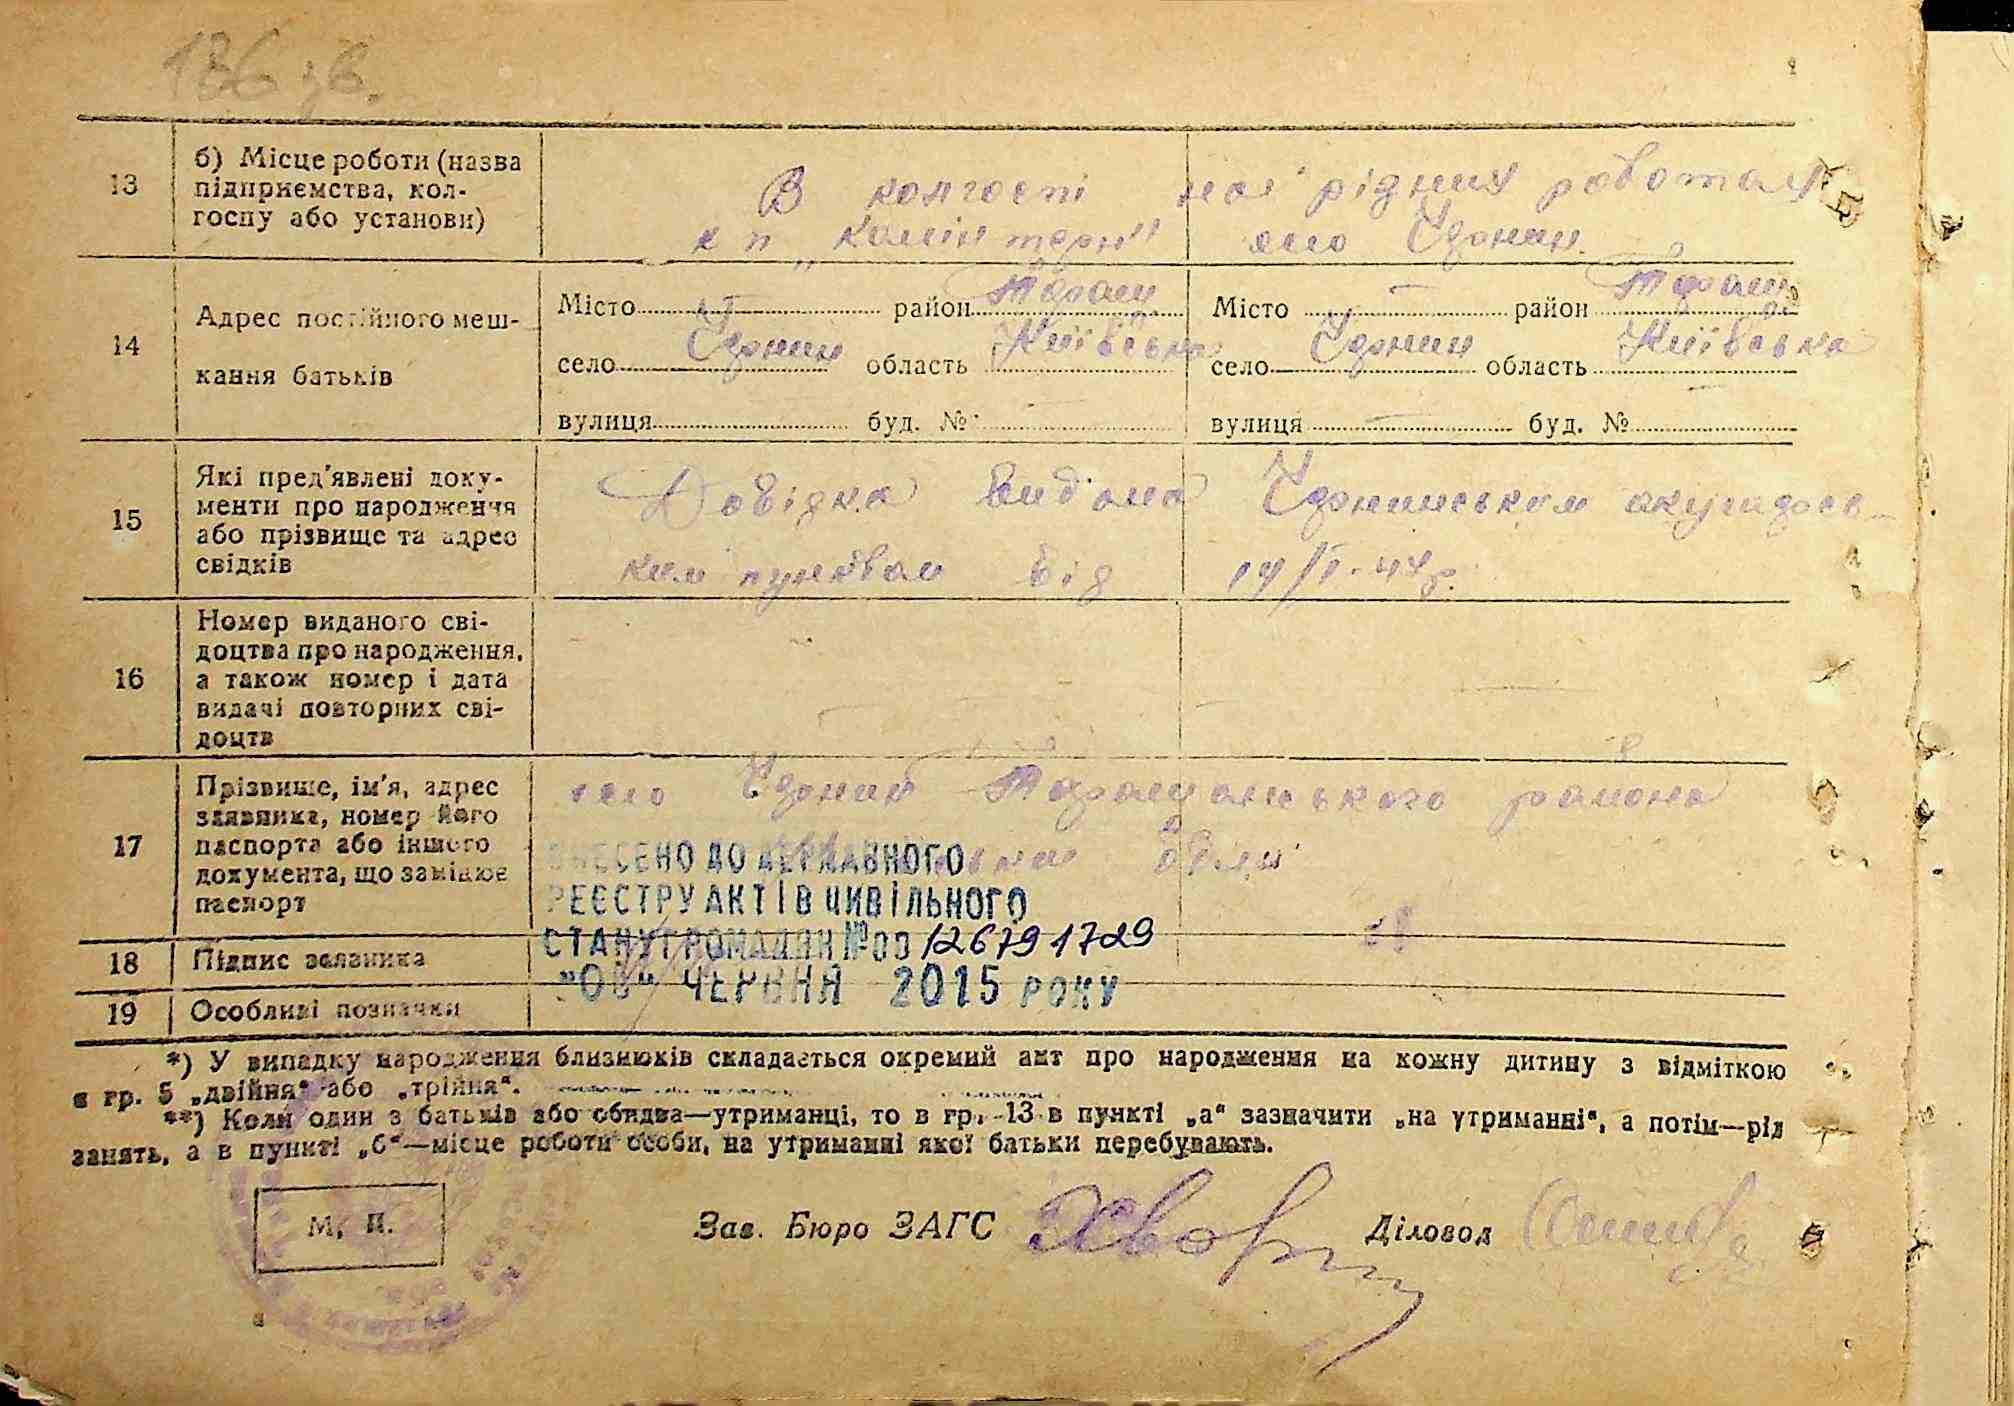 186 зв.
13
б) Місце роботи (назва
підприємства, кол-
госпу або установи)
В колгоспі на рідних роботах
к п „Комінтерн" село Чернин
14
Адрес постійного меш-
кання батьків
Місто — район Таращ. Місто — район Таращ.
село Чернин область Київська село Чернин область Київська
вулиця буд. № вулиця — буд. № —
15
Які пред'явлені доку-
менти про народження
або прізвище та адрес
свідків
Довідка видана Чернинським акушерсь-
ким пунктом від 14/I-44р.
16
Номер виданого сві-
доцтва про народження,
а також номер і дата
видачі повторних сві-
доцтв
17
Прізвище, ім'я, адрес
заявника, номер його
паспорта або іншого
документа, що замінює
паспорт
село Чернин Таращанського района
області
ВНЕСЕНО ДО ДЕРЖАВНОГО
РЕЄСТРУ АКТІВ ЦИВІЛЬНОГО
СТАНУ ГРОМАДЯН №00126791729
"08" ЧЕРВНЯ 2015 РОКУ
18
Підпис заявника
19
Особливі позначки
*) У випадку народження близнюків складається окремий акт про народження на кожну дитину з відміткою
в гр. 5 „двійня" або „трійня".
**) Коли один з батьків або обидва—утриманці, то в гр. 13 в пункті „а" зазначити „на утриманні", а потім—рід
занять, а в пункті „б"—місце роботи особи, на утриманні якої батьки перебувають.
М. П.
Зав. Бюро ЗАГС
Діловод